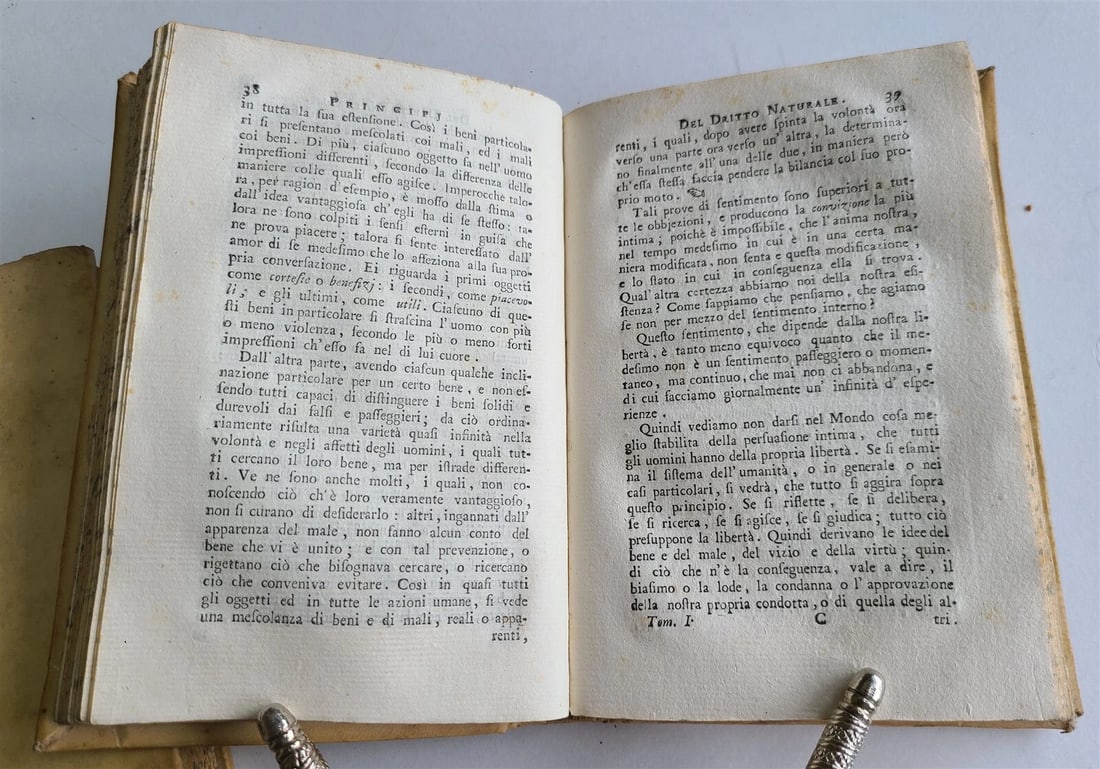 38
PRINCIPJ
in tutta la ſua eſtenſione. Così i beni particola-
ri ſi preſentano meſcolati coi mali, ed i mali
coi beni. Di più, ciaſcuno oggetto fa nell'uomo
impreſſioni differenti, ſecondo la differenza delle
maniere colle quali eſſo agiſce. Imperocche talo-
ra, per ragion d'eſempio, è moſſo dalla ſtima o
dall'idea vantaggioſa ch'egli ha di ſe ſteſſo: ta-
lora ne ſono colpiti i ſenſi eſterni in guiſa che
ne prova piacere; talora ſi ſente intereſſato dall'
amor di ſe medeſimo che lo affeziona alla ſua pro-
pria converſazione. Ei riguarda i primi oggetti
come corteſie o benefizj: i ſecondi, come piacevo-
li; e gli ultimi, come utili. Ciaſcuno di que-
ſti beni in particolare ſi ſtraſcina l'uomo con più
o meno violenza, ſecondo le più o meno forti
impreſſioni ch'eſſo fa nel di lui cuore.
Dall'altra parte, avendo ciaſcun qualche incli-
nazione particolare per un certo bene, e non eſ-
ſendo tutti capaci di diſtinguere i beni ſolidi e
durevoli dai falſi e paſſeggieri; da ciò ordina-
riamente riſulta una varietà quaſi infinità nella
volontà e negli affetti degli uomini, i quali tut-
ti cercano il loro bene, ma per iſtrade differen-
ti. Ve ne ſono anche molti, i quali, non co-
noſcendo ciò ch'è loro veramente vantaggioſo,
non ſi curano di deſiderarlo: altri, ingannati dall'
apparenza del male, non fanno alcun conto del
bene che vi è unito; e con tal prevenzione, o
rigettano ciò che biſognava cercare, o ricercano
ciò che conveniva evitare. Così in quaſi tutti
gli oggetti ed in tutte le azioni umane, ſi vede
una meſcolanza di beni e di mali, reali o appa-
renti,
DEL DRITTO NATURALE. 39
renti, i quali, dopo avere ſpinta la volontà ora
verſo una parte ora verſo un'altra, la determina-
no finalmente all'una delle due, in maniera però
ch'eſſa ſteſſa faccia pendere la bilancia col ſuo pro-
prio moto.
Tali prove di ſentimento ſono ſuperiori a tut-
te le obbjezioni, e producono la convizione la più
intima; poichè è impoſſibile, che l'anima noſtra,
nel tempo medeſimo in cui è in una certa ma-
niera modificata, non ſenta e queſta modificazione,
e lo ſtato in cui in conſeguenza ella ſi trova.
Qual'altra certezza abbiamo noi della noſtra eſi-
ſtenza? Come ſappiamo che penſiamo, che agiamo
ſe non per mezzo del ſentimento interno?
Queſto ſentimento, che dipende dalla noſtra li-
bertà, è tanto meno equivoco quanto che il me-
deſimo non è un ſentimento paſſeggiero o momen-
taneo, ma continuo, che mai non ci abbandona, e
di cui facciamo giornalmente un' infinità d' eſpe-
rienze.
Quindi vediamo non darſi nel Mondo coſa me-
glio ſtabilita della perſuaſione intima, che tutti
gli uomini hanno della propria libertà. Se ſi eſami-
na il ſiſtema dell'umanità, o in generale o nei
caſi particolari, ſi vedrà, che tutto ſi aggira ſopra
queſto principio. Se ſi riflette, ſe ſi delibera,
ſe ſi ricerca, ſe ſi agiſce, ſe ſi giudica; tutto ciò
preſuppone la libertà. Quindi derivano le idee del
bene e del male, del vizio e della virtù; quin-
di ciò che n'è la conſeguenza, vale a dire, il
biaſimo o la lode, la condanna o l'approvazione
della noſtra propria condotta, o di quella degli al-
Tom. I. C tri.